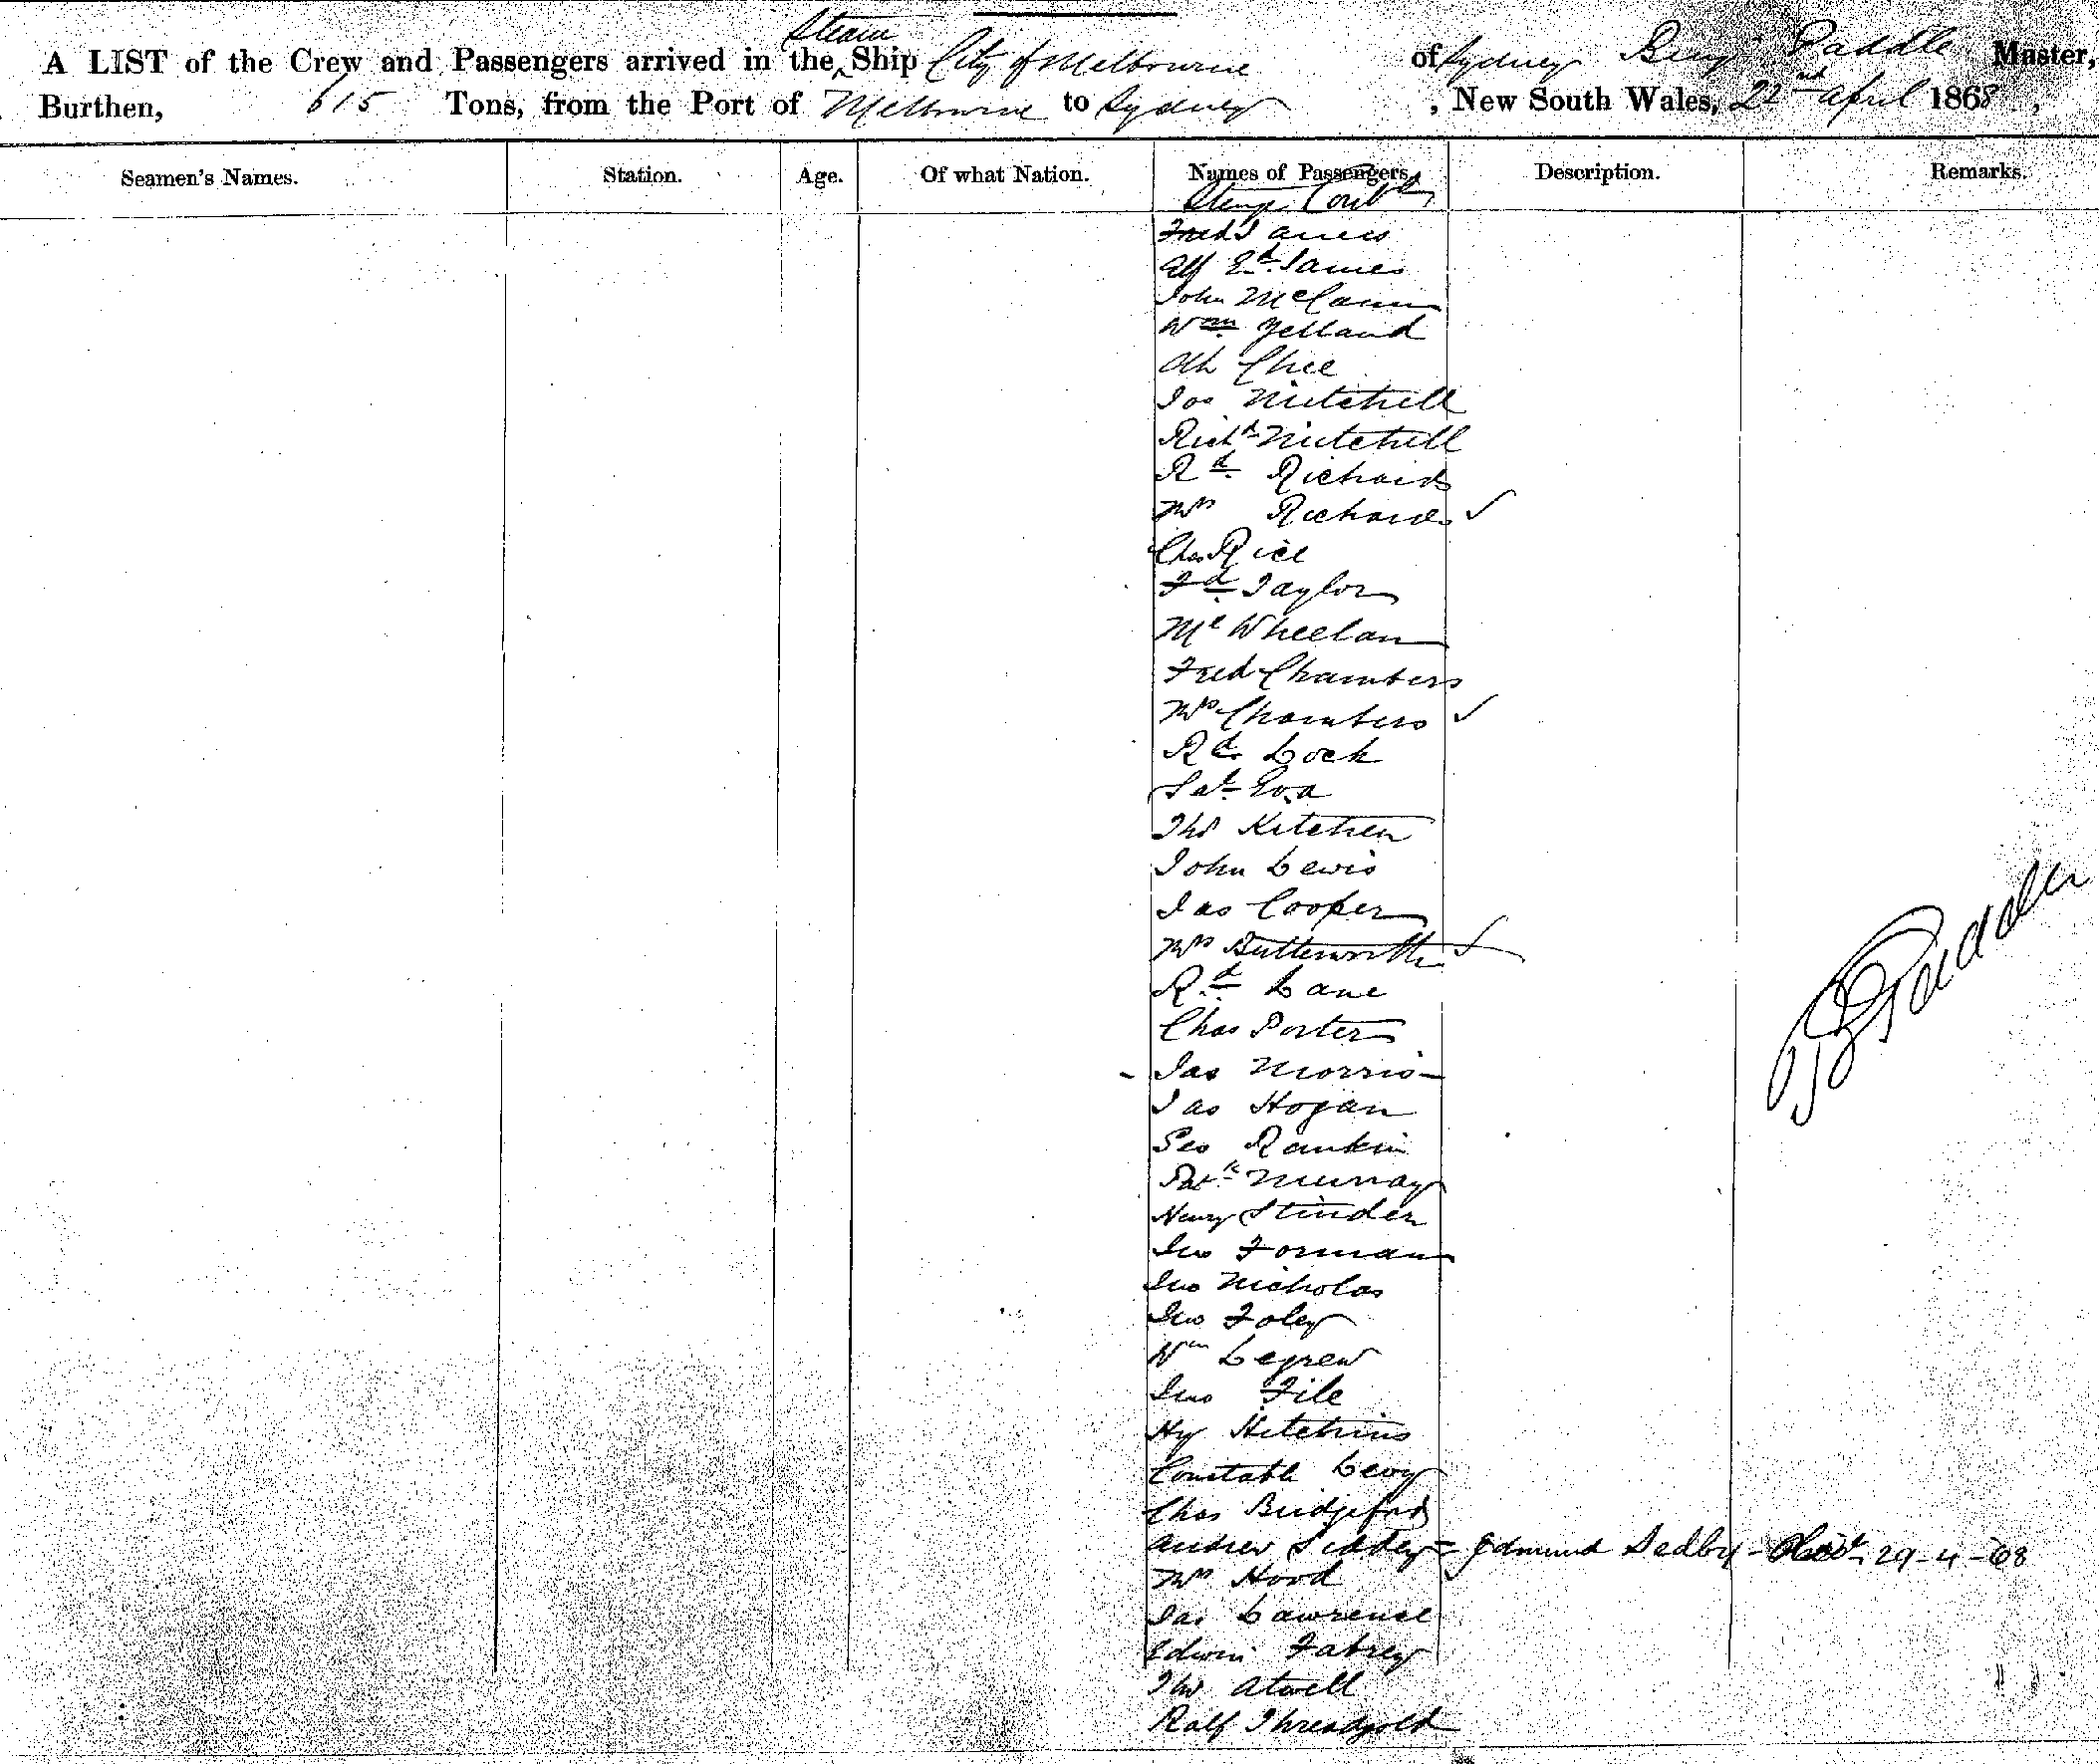 A LIST of the Crew and Passengers arrived in the Steam Ship City of Melbourne of Sydney Benj Paddle Master,
Burthen, 615 Tons, from the Port of Melbourne to Sydney, New South Wales, 22nd April 1868,
Seamen's Names. Station. Age. Of what Nation. Names of Passengers. Description. Remarks.
Steerage Contd
Fred James
Alf Ed James
John McCann
Wm Yelland
Ah Chee
Jos Mitchell
Richd Mitchell
Rd Richards
Mrs Richards ✓
Chas Rice
Fd Taylor
Ml Wheelan
Fred Chambers
Mrs Chambers ✓
Rd Lock
Eva
Thos Kitchen
John Lewis
Jas Cooper
Mrs Butterworth ✓
Rd Lane
Chas Porter
Jas Morris
Jas Hogan
Geo Rankin
Patk Murray
Henry Stinder
Jno Forman
Jno Nicholas
Jno Foley
Wm Legrew
Jno File
Hy Hitchins
Constable Levy
Chas Bridgeford
Andrew Siddey = Edmund Sedby - 29-4-68
Mrs Hood
Jas Lawrence
Edwin Fabrey
Thos Atwell
Ralf Threadgold
B Paddle